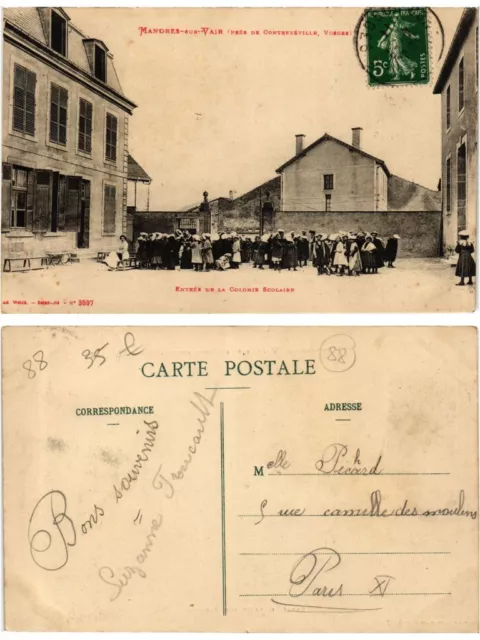 MANDRES-SUR-VAIR (PRÈS DE CONTREXÉVILLE, VOSGES)
5c
ENTRÉE DE LA COLONIE SCOLAIRE
Ad. Weick. — Saint-Dié — N° 3597
88 35 €
88
CARTE POSTALE
CORRESPONDANCE
ADRESSE
Bons souvenirs
=
Suzanne
Melle Pichard
5 rue camille des moulins
Paris XI